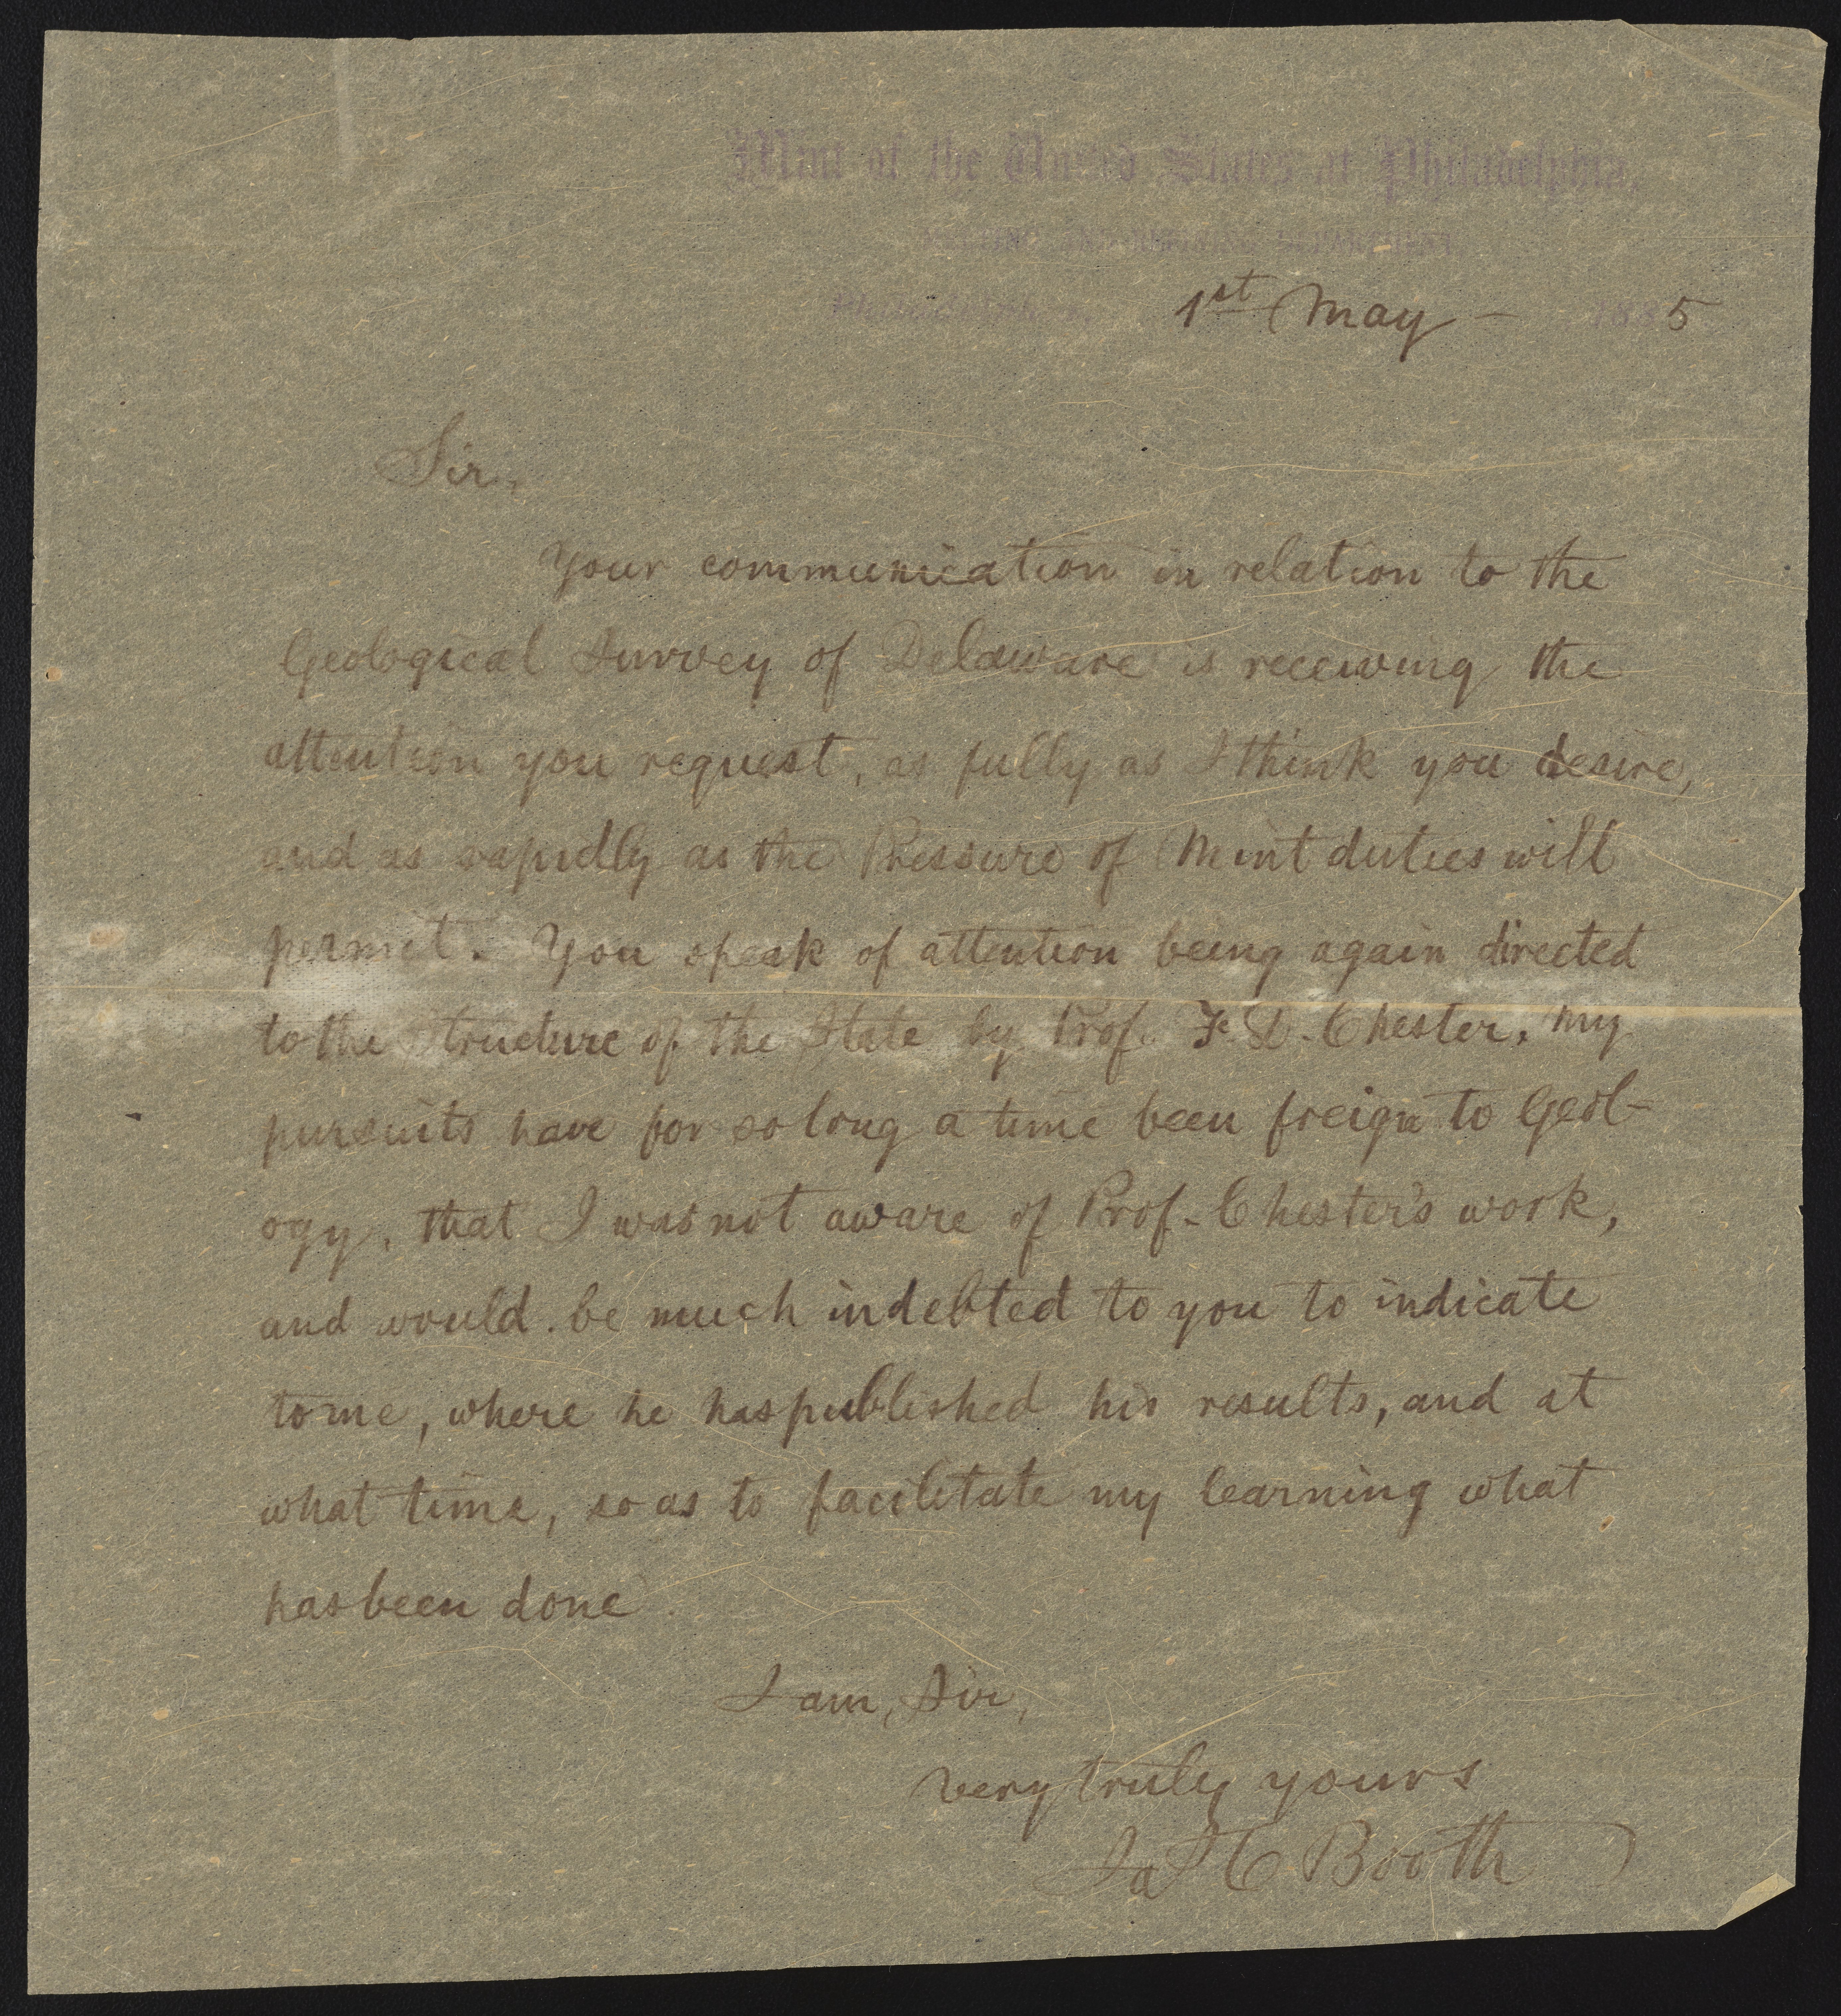 Mint of the United States at Philadelphia,
MELTING AND REFINING DEPARTMENT
Philadelphia, 1st May – 1885
Sir,
Your communication in relation to the
Geological Survey of Delaware is receiving the
attention you request, as fully as I think you desire,
and as rapidly as the Pressure of Mint duties will
permit. You speak of attention being again directed
to the Structure of the State by Prof. F. D. Chester, My
pursuits have for so long a time been freign to Geol-
ogy, that I was not aware of Prof. Chester's work,
and would be much indebted to you to indicate
to me, where he has published his results, and at
what time, so as to facilitate my learning what
has been done.
I am, Sir,
very truly yours
Jas C Booth